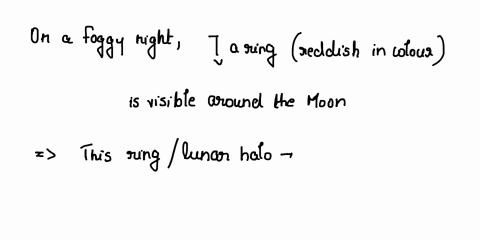 On a foggy night, a ring (reddish in colour)
is visible around the Moon
=> This ring / lunar halo →